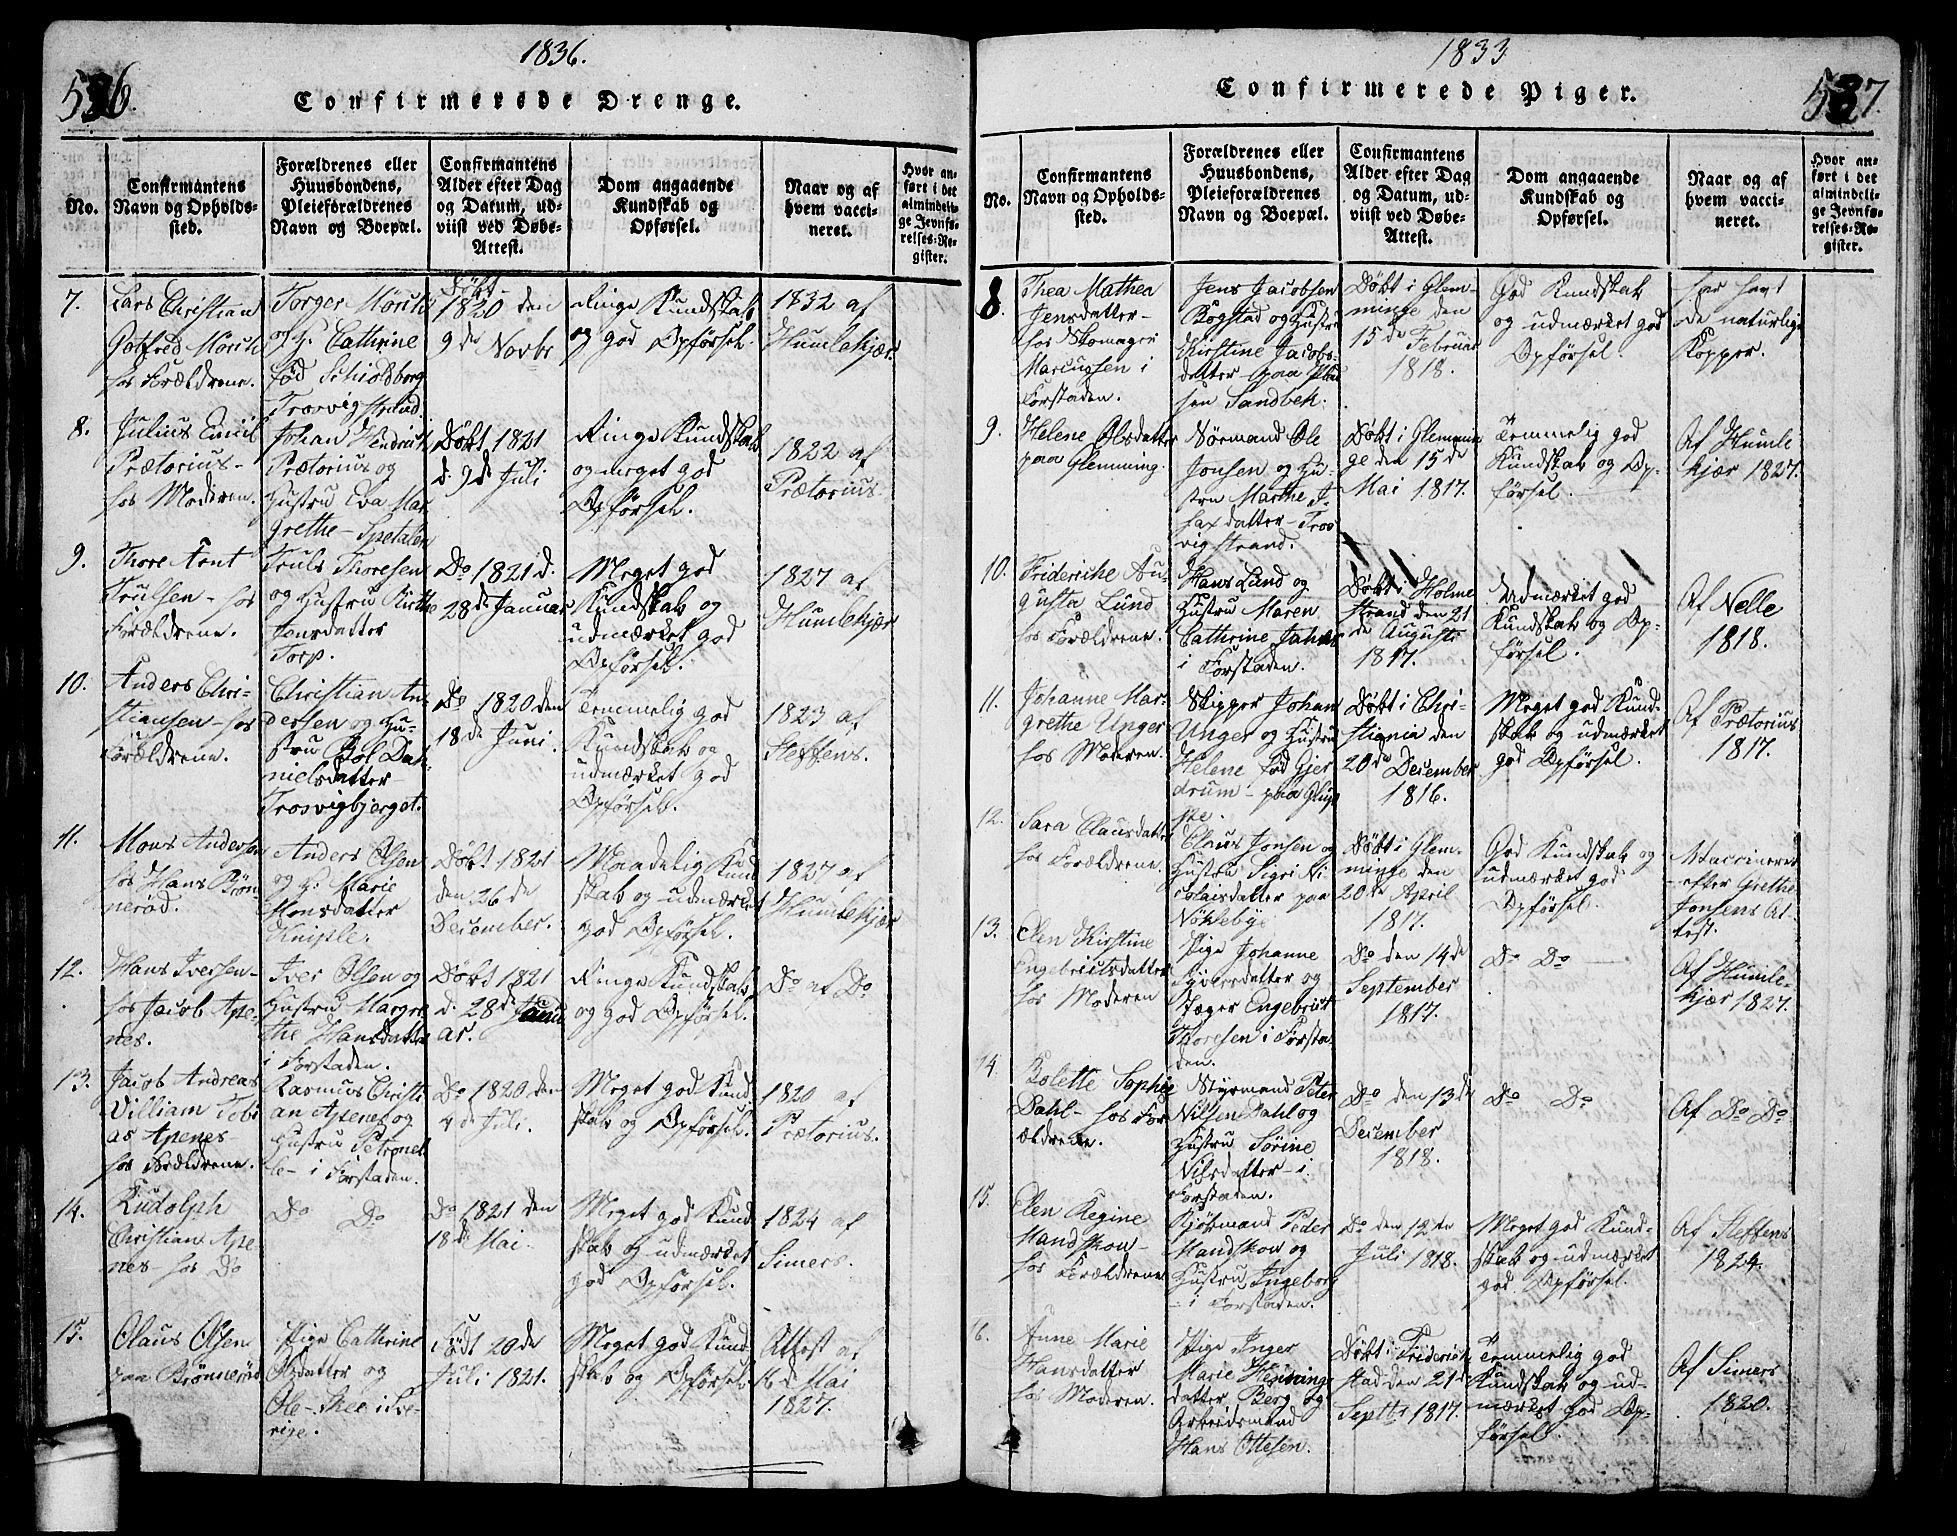 1836.
536.
Confirmerede Drenge.
No.
Confirmantens
Navn og Opholds-
sted.
Forældrenes eller
Huusbondens,
Pleieforældrenes
Navn og Boepæl.
Confirmantens
Alder efter Dag
og Datum, ud-
viist ved Døbe-
Attest.
Dom angaaende
Kundskab og
Opførsel.
Naar og af
hvem vacci-
neret.
Hvor an-
ført i det
almindeli-
ge Jevnfø-
relses-Re-
gister.
7.
Lars Christian
Gotfred Mørch
hos Forældrene.
Torger Mørch
og H. Cathrine
fød Schioldborg
Trosvigstrand.
Døbt
1820 den
9de Novbr
Ringe Kundskab
og god Opførsel.
1832 af
Humlekjær
8.
Julius Emil
Prætorius -
hos Moderen.
Johan Hendrich
Prætorius og
Hustru Eva Mar-
grethe - Spetalen
Døbt 1821
d. 9de Juli
Ringe Kundskab
og meget god
Opførsel.
1822 af
Prætorius.
9.
Thore Arnt
Trulsen - hos
Forældrene.
Truls Thoresen
og Hustru Birthe
Jensdatter
Torp.
Do 1821 d.
28de Januar
Meget god
Kundskab og
udmærket god
Opførsel.
1827 af
Humlekjær
10.
Anders Chri-
stiansen - hos
Forældrene.
Christian An-
dersen og Hu-
stru Bol Da-
nielsdatter
Trosvigbjerget.
Do 1820 den
18de Juni.
Temmelig god
Kundskab og
udmærket god
Opførsel.
1823 af
Steffens.
11.
Mons Andersen
hos Hans Brøn-
nerød.
Anders Olsen
og H. Marie
Monsdatter
Kniple.
Døbt 1821
den 26de
December.
Maadelig Kund
skab og udmærket
god Opførsel.
1827 af
Humlekjær
12.
Hans Iversen -
hos Jacob Ape-
nes.
Iver Olsen og
Hustru Margre
the Hansdatter
i Forstaden.
Døbt 1821
d. 28de Janu
ar.
Ringe Kundskab
og god Opførsel.
Do af Do
13.
Jacob Andreas
Villiam Tobi
as Apenes
hos Forældrene.
Rasmus Christi
an Apenes og
Hustru Petronel
le - i Forstaden.
Do 1820 den
4de Juli.
Meget god Kund
skab og Opførsel.
1820 af
Prætorius.
14.
Rudolph
Christian Ape-
nes - hos Do
Do Do
Do 1821 den
18de Mai.
Meget god Kund
skab og udmærket
god Opførsel.
1824 af
Simers.
15.
Claus Olsen
paa Brønnerød
Pige Cathrine
Olsdatter og
Født 20de
Juli 1821.
Meget god Kund
skab og Opførsel.
Attest af
16 d. Mai
1827.
1833
537.
Confirmerede Piger.
No.
Confirmantens
Navn og Opholds-
sted.
Forældrenes eller
Huusbondens,
Pleieforældrenes
Navn og Boepæl.
Confirmantens
Alder efter Dag
og Datum, ud-
viist ved Døbe-
Attest.
Dom angaaende
Kundskab og
Opførsel.
Naar og af
hvem vacci-
neret.
Hvor an-
ført i det
almindeli-
ge Jevnfø-
relses-Re-
gister.
8.
Thea Mathea
Jensdatter -
hos Skomager
Marcussen i
Forstaden.
Jens Jacobsen
Bogstad og Hustru
Kirstine Jacobs-
datter - paa Plad
sen Sandbek.
Døbt i Glem-
minge den
15de Februar
1818.
God Kundskab
og udmærket god
Opførsel.
Har havt
de naturlige
Kopper.
9.
Helene Olsdatter
paa Glemming.
Nørmand Ole
Jonsen og Hu-
stru Marthe J-
saxdatter - Tros
vigstrand.
Døbt i Glemmin
ge den 15de
Mai 1817.
Temmelig god
Kundskab og Op-
førsel.
Af Humle
kjær 1827.
10.
Friderikke Au-
gusta Lund
hos Forældrene.
Hans Lund og
Hustru Maren
Cathrine Jahns
i Forstaden.
Døbt i Holme
strand den 21
de Augusti
1817.
Udmærket god
Kundskab og Op-
førsel.
Af Nelle
1818.
11.
Johanne Mar-
grethe Unger
hos Moderen.
Skipper Johan
Unger og Hustru
Helene fød Gjer
drum - paa Glup
pe.
Døbt i Chri-
stiania den
20de December
1816.
Meget god Kund-
skab og udmærket
god Opførsel.
Af Prætorius
1817.
12.
Sara Clausdatter
hos Forældrene.
Claus Jonsen og
Hustru Sigri Ni-
colaisdatter paa
Nøkleby.
Døbt i Glem-
minge den
20de April
1817.
God Kundskab og
udmærket god
Opførsel.
Vaccineret
efter Grethe
Jonsens At-
test.
13.
Elen Kirstine
Engebrictsdatter
hos Moderen
Pige Johanne
Syversdatter og
Jæger Engebrict
Thoresen i Forsta-
den.
Do den 14de
September
1817.
Do Do
Af Humle-
kjær 1827.
14.
Bolette Sophie
Dahl - hos For
ældrene.
Styrmand Peter
Nilsen Dahl og
Hustru Sørine
Nilsdatter - i
Forstaden.
Do den 13de
December
1818.
Do Do
Af Do Do
15.
Elen Regine
Mandskow -
hos Forældrene
Kjøbmand Peder
Mandskow og
Hustru Ingeborg
- i Forstaden.
Do den 12te
Juli 1818.
Meget god Kund-
skab og udmærket
god Opførsel.
Af Steffens
1824.
16.
Anne Marie
Hansdatter
hos Moderen.
Pige Inger
Marie Henning-
datter Berg og
Arbeidsmand
Hans Ottesen.
Døbt i Friderich
stad den 21de
Septbr 1817.
Temmelig god
Kundskab og ud-
mærket god Op-
førsel.
Af Simers
1820.